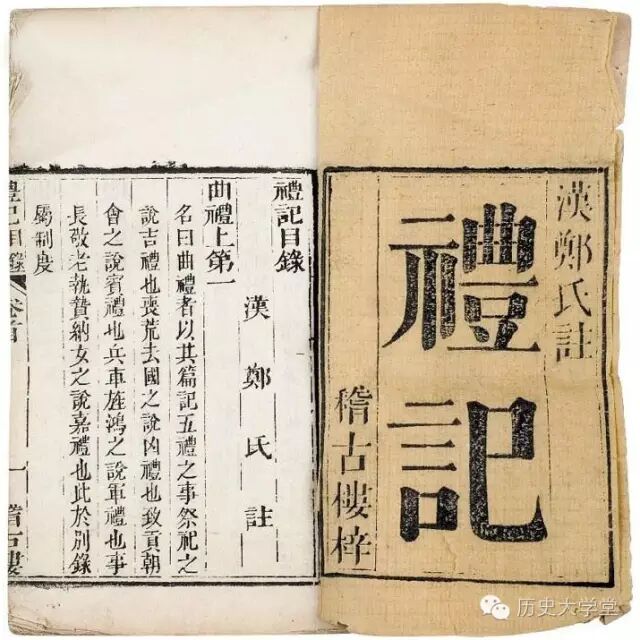 漢鄭氏註
禮記
稽古樓梓
禮記目錄
漢鄭氏註
曲禮上第一
名曰曲禮者以其篇記五禮之事祭祀之
說吉禮也喪荒去國之說凶禮也致貢朝
會之說賓禮也兵車旌鴻之說軍禮也事
長敬老執贄納女之說嘉禮也此於別錄
屬制度
禮記目錄 卷首 一 稽古樓
历史大学堂